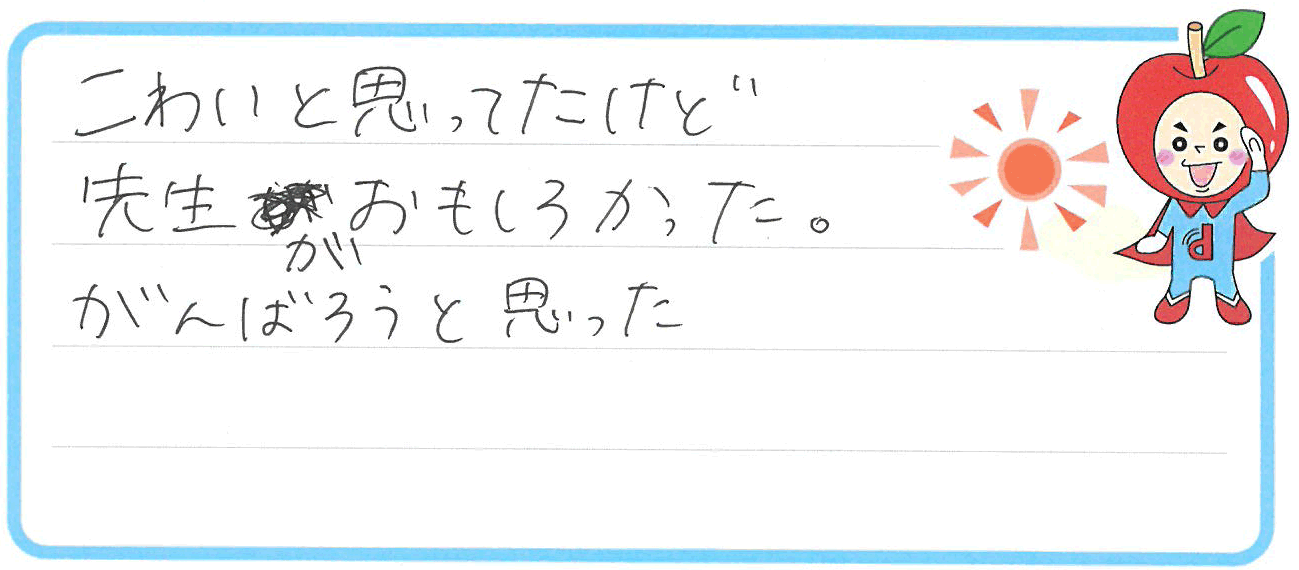 こわいと思ってたけど
先生がおもしろかった。
がんばろうと思った